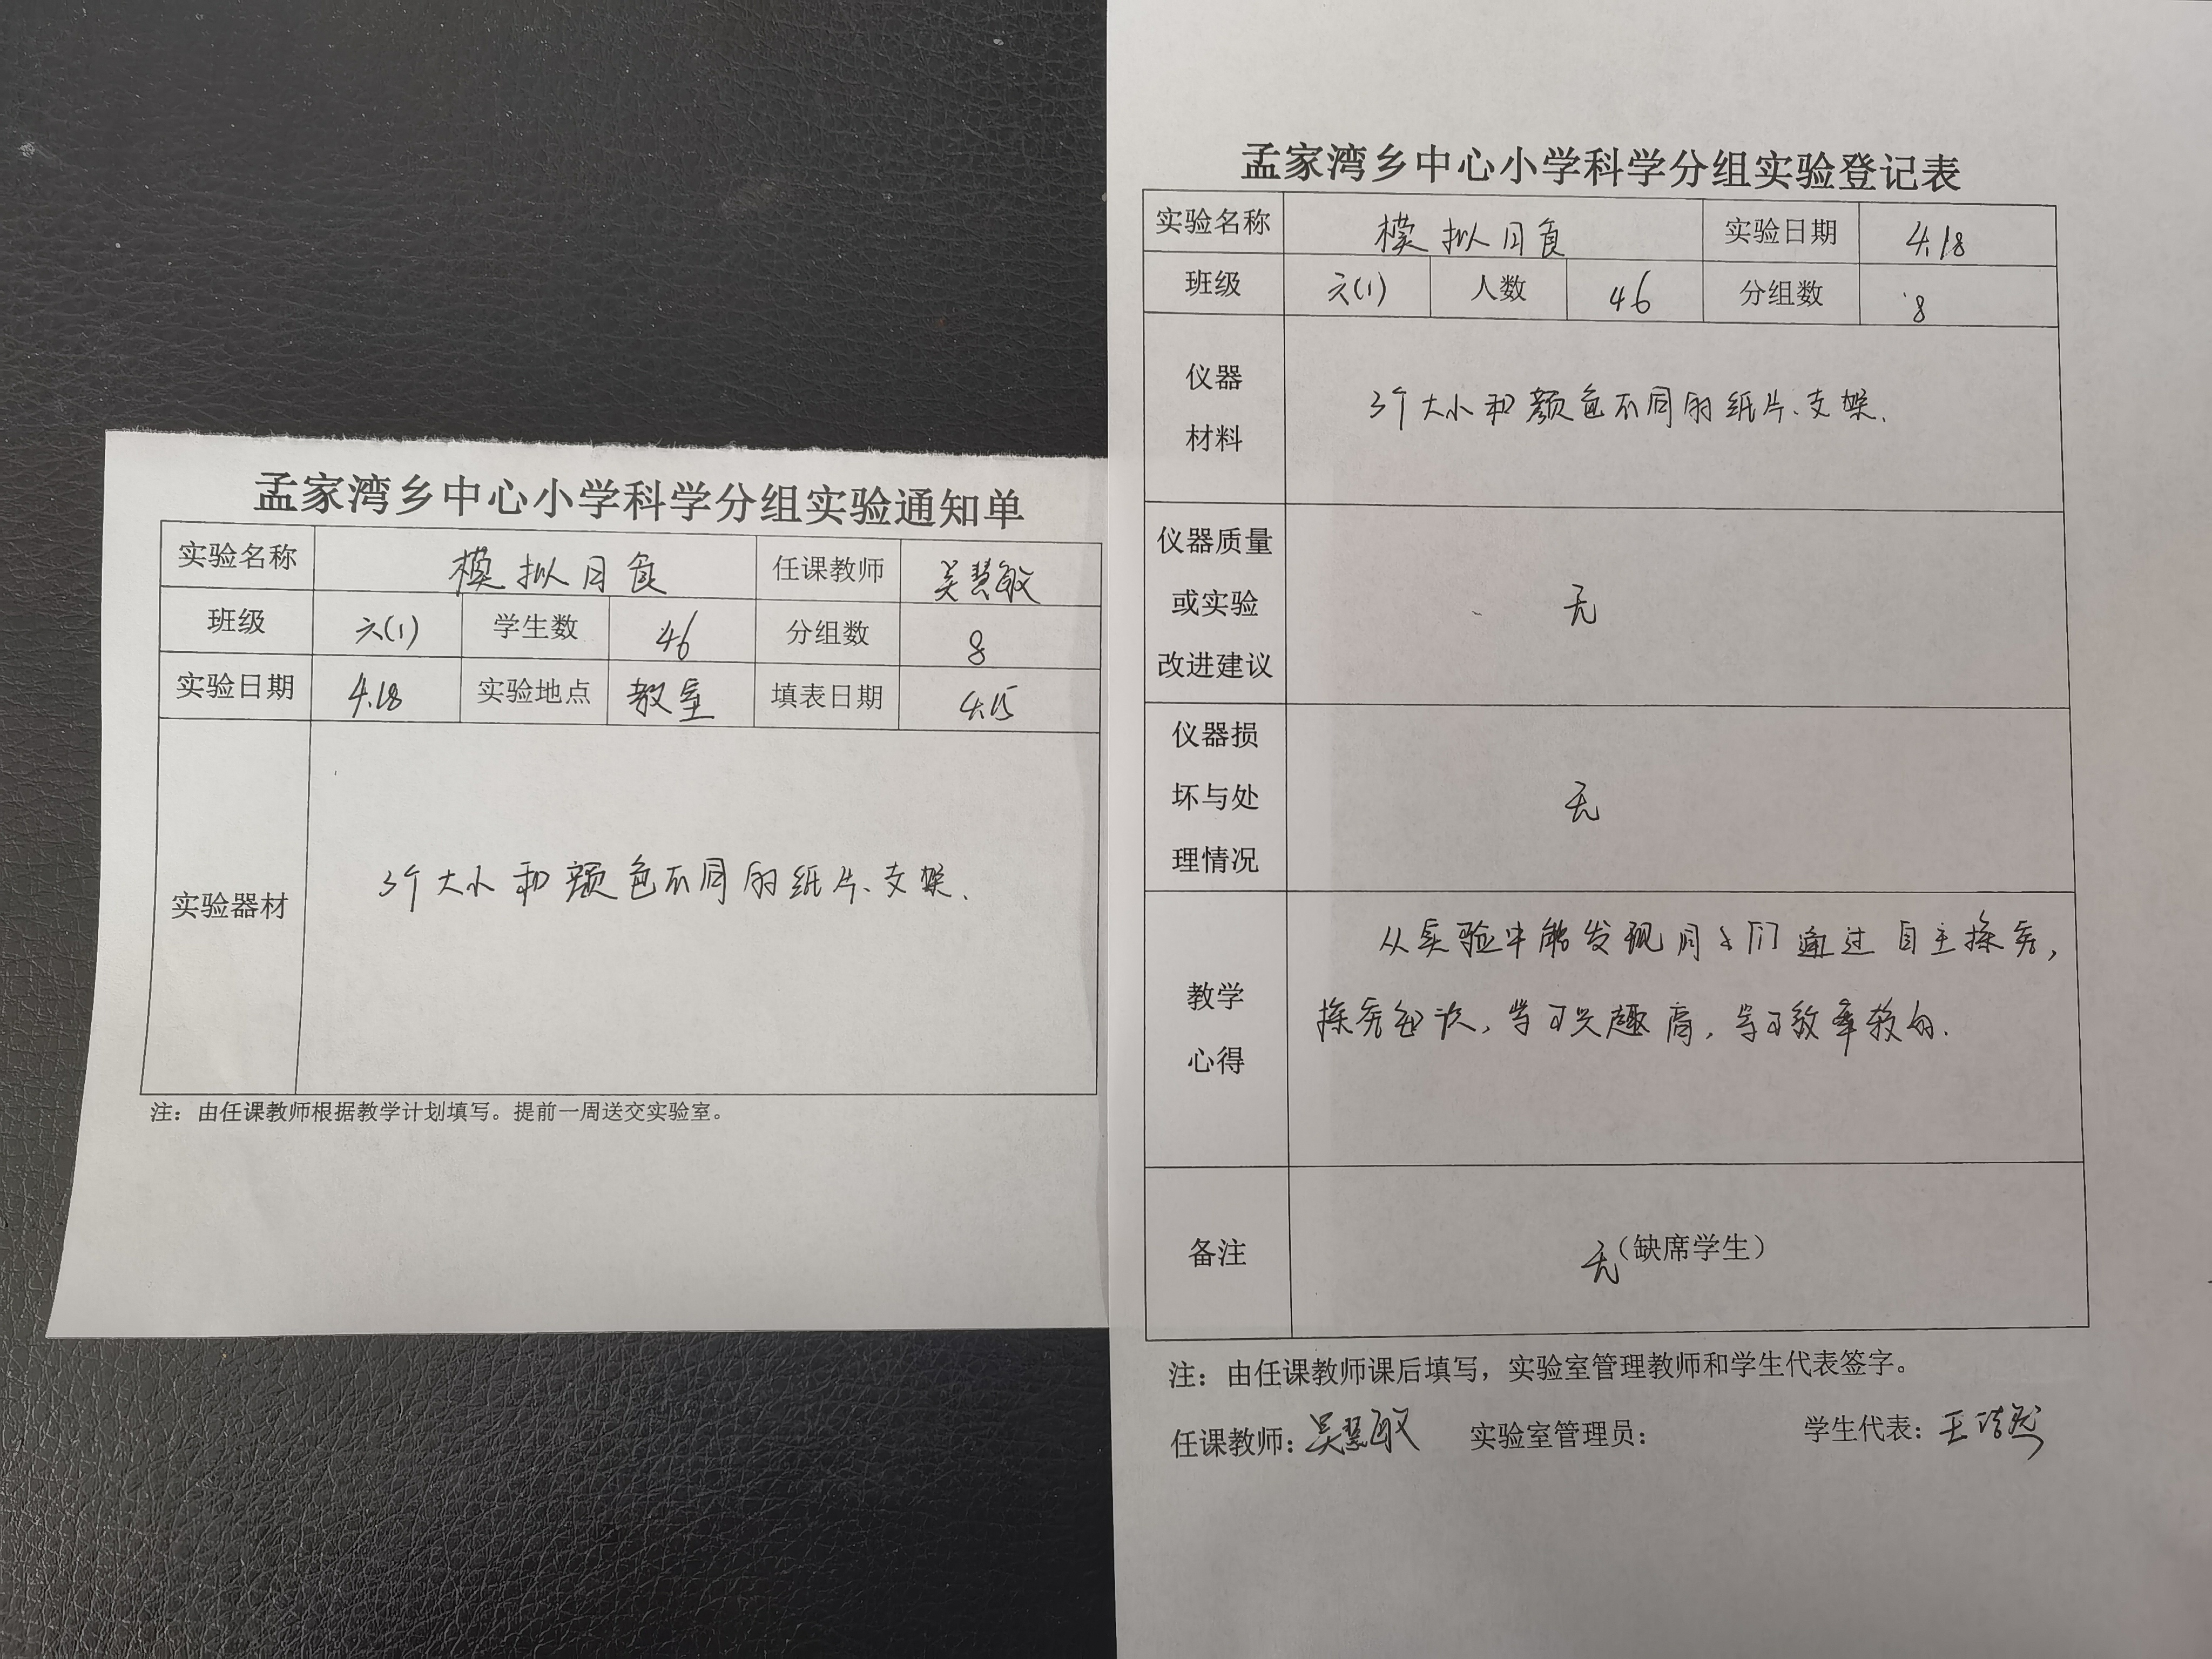 孟家湾乡中心小学科学分组实验通知单
实验名称 模拟日食 任课教师 吴慧敏
班级 六(1) 学生数 46 分组数 8
实验日期 4.18 实验地点 教室 填表日期 4.15
实验器材 3个大小和颜色不同的纸片、支架.
注：由任课教师根据教学计划填写。提前一周送交实验室。
孟家湾乡中心小学科学分组实验登记表
实验名称 模拟日食 实验日期 4.18
班级 六(1) 人数 46 分组数 8
仪器
材料
3个大小和颜色不同的纸片、支架.
仪器质量
或实验
改进建议
无
仪器损
坏与处
理情况
无
教学
心得
从实验中能发现同学们通过自主探究,
学习兴趣高, 学习效率较
备注 无（缺席学生）
注：由任课教师课后填写，实验室管理教师和学生代表签字。
任课教师: 吴慧敏 实验室管理员: 学生代表: 王